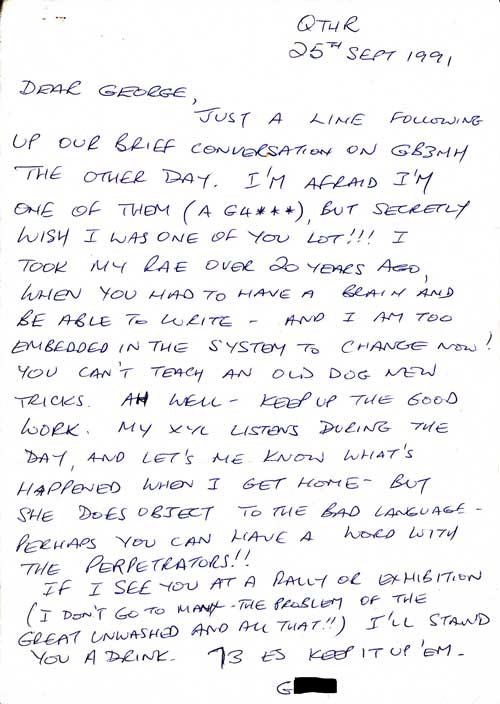 QTHR
25TH SEPT 1991
DEAR GEORGE,
JUST A LINE FOLLOWING
UP OUR BRIEF CONVERSATION ON GB3MH
THE OTHER DAY. I'M AFRAID I'M
ONE OF THEM (A G4***), BUT SECRETLY
WISH I WAS ONE OF YOU LOT!!! I
TOOK MY RAE OVER 20 YEARS AGO,
WHEN YOU HAD TO HAVE A BRAIN AND
BE ABLE TO WRITE - AND I AM TOO
EMBEDDED IN THE SYSTEM TO CHANGE NOW!
YOU CAN'T TEACH AN OLD DOG NEW
TRICKS. AH WELL - KEEP UP THE GOOD
WORK. MY XYL LISTENS DURING THE
DAY, AND LET'S ME KNOW WHAT'S
HAPPENED WHEN I GET HOME - BUT
SHE DOES OBJECT TO THE BAD LANGUAGE -
PERHAPS YOU CAN HAVE A WORD WITH
THE PERPETRATORS!!
IF I SEE YOU AT A RALLY OR EXHIBITION
(I DON'T GO TO MANY - THE PROBLEM OF THE
GREAT UNWASHED AND ALL THAT!!) I'LL STAND
YOU A DRINK. 73 ES KEEP IT UP 'EM -
G